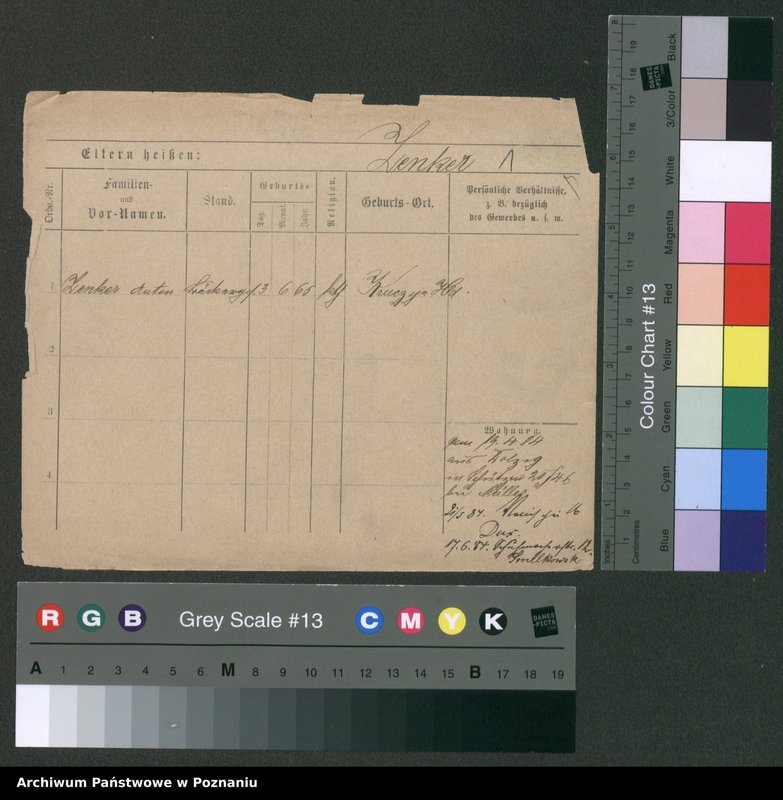 Zenker
Eltern heißen:
Ordn.-Nr.
Familien-
und
Vor-Namen.
Stand.
Geburts-
Tag.
Monat.
Jahr.
Religion.
Geburts-Ort.
Persönliche Verhältnisse,
z. B. bezüglich
des Gewerbes u. s. w.
1 Zenker Anton Bäckerges. 3 6 65 kth
2
3
4
Wohnung.
19.4.84
aus Dolzig
in 20/46
bei Müller
21/5 84. 16.
17.6.84. 12.
Colour Chart #13
Blue
Cyan
Green
Yellow
Red
Magenta
White
3/Color
Black
DANES
-PICTA
Inches 1 2 3 4 5 6 7 8
Centimetres 1 2 3 4 5 6 7 8 9 10 11 12 13 14 15 16 17 18 19
R G B Grey Scale #13 C M Y K
DANES
-PICTA
A 1 2 3 4 5 6 M 8 9 10 11 12 13 14 15 B 17 18 19
Archiwum Państwowe w Poznaniu